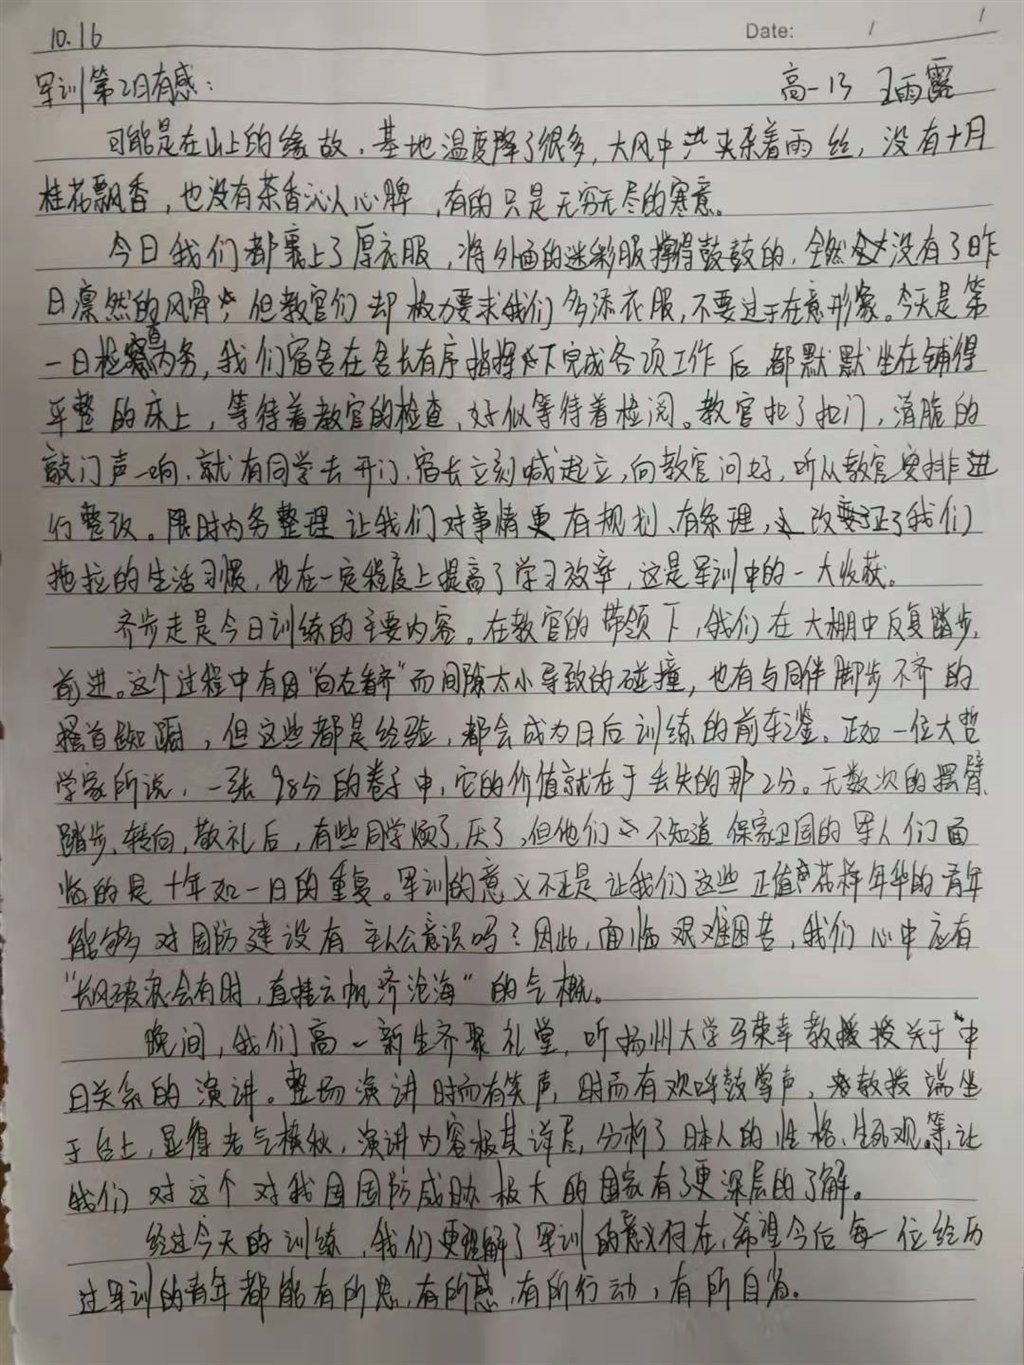 10.16
Date: / /
军训第2日有感: 高一13 王雨露
可能是在山上的缘故,基地温度降了很多,大风中夹杂着雨丝,没有十月
桂花飘香,也没有茶香沁人心脾,有的只是无穷无尽的寒意。
今日我们都裹上了厚衣服,将外面的迷彩服撑得鼓鼓的,全然没有了昨
日凛然的风骨,但教官们却极力要求我们多添衣服,不要过于在意形象。今天是第
一日检察内务,我们宿舍在舍长有序指挥下完成各项工作后都默默坐在铺得
平整的床上,等待着教官的检查,好似等待着检阅。教官扣了扣门,清脆的
敲门声一响,就有同学去开门,宿长立刻喊起立,向教官问好,听从教官安排进
行整改。限时内务整理让我们对事情更有规划、有条理,改正了我们
拖拉的生活习惯,也在一定程度上提高了学习效率,这是军训中的一大收获。
齐步走是今日训练的主要内容。在教官的带领下,我们在大棚中反复踏步,
前进。这个过程中有因“向左看齐”而间隙太小导致的碰撞,也有与同伴脚步不齐的
搔首踟蹰,但这些都是经验,都会成为日后训练的前车之鉴。正如一位大哲
学家所说,一张98分的卷子中,它的价值就在于丢失的那2分。无数次的摆臂、
踏步、转向、敬礼后,有些同学烦了,厌了,但他们不知道保家卫国的军人们面
临的是十年如一日的重复。军训的意义不正是让我们这些正值花样年华的青年
能够对国防建设有主人公意识吗?因此,面临艰难困苦,我们心中应有
“长风破浪会有时,直挂云帆济沧海”的气概。
晚间,我们高一新生齐聚礼堂,听扬州大学马荣幸教授关于“中
日关系的演讲。整场演讲时而有笑声,时而有欢呼鼓掌声,教授端坐
于台上,显得老气横秋,演讲内容极其详尽,分析了日本人的性格、生死观等,让
我们对这个对我国国防威胁极大的国家有了更深层的了解。
经过今天的训练,我们更理解了军训的意义何在,希望今后每一位经历
过军训的青年都能有所思,有所感,有所行动,有所自省。